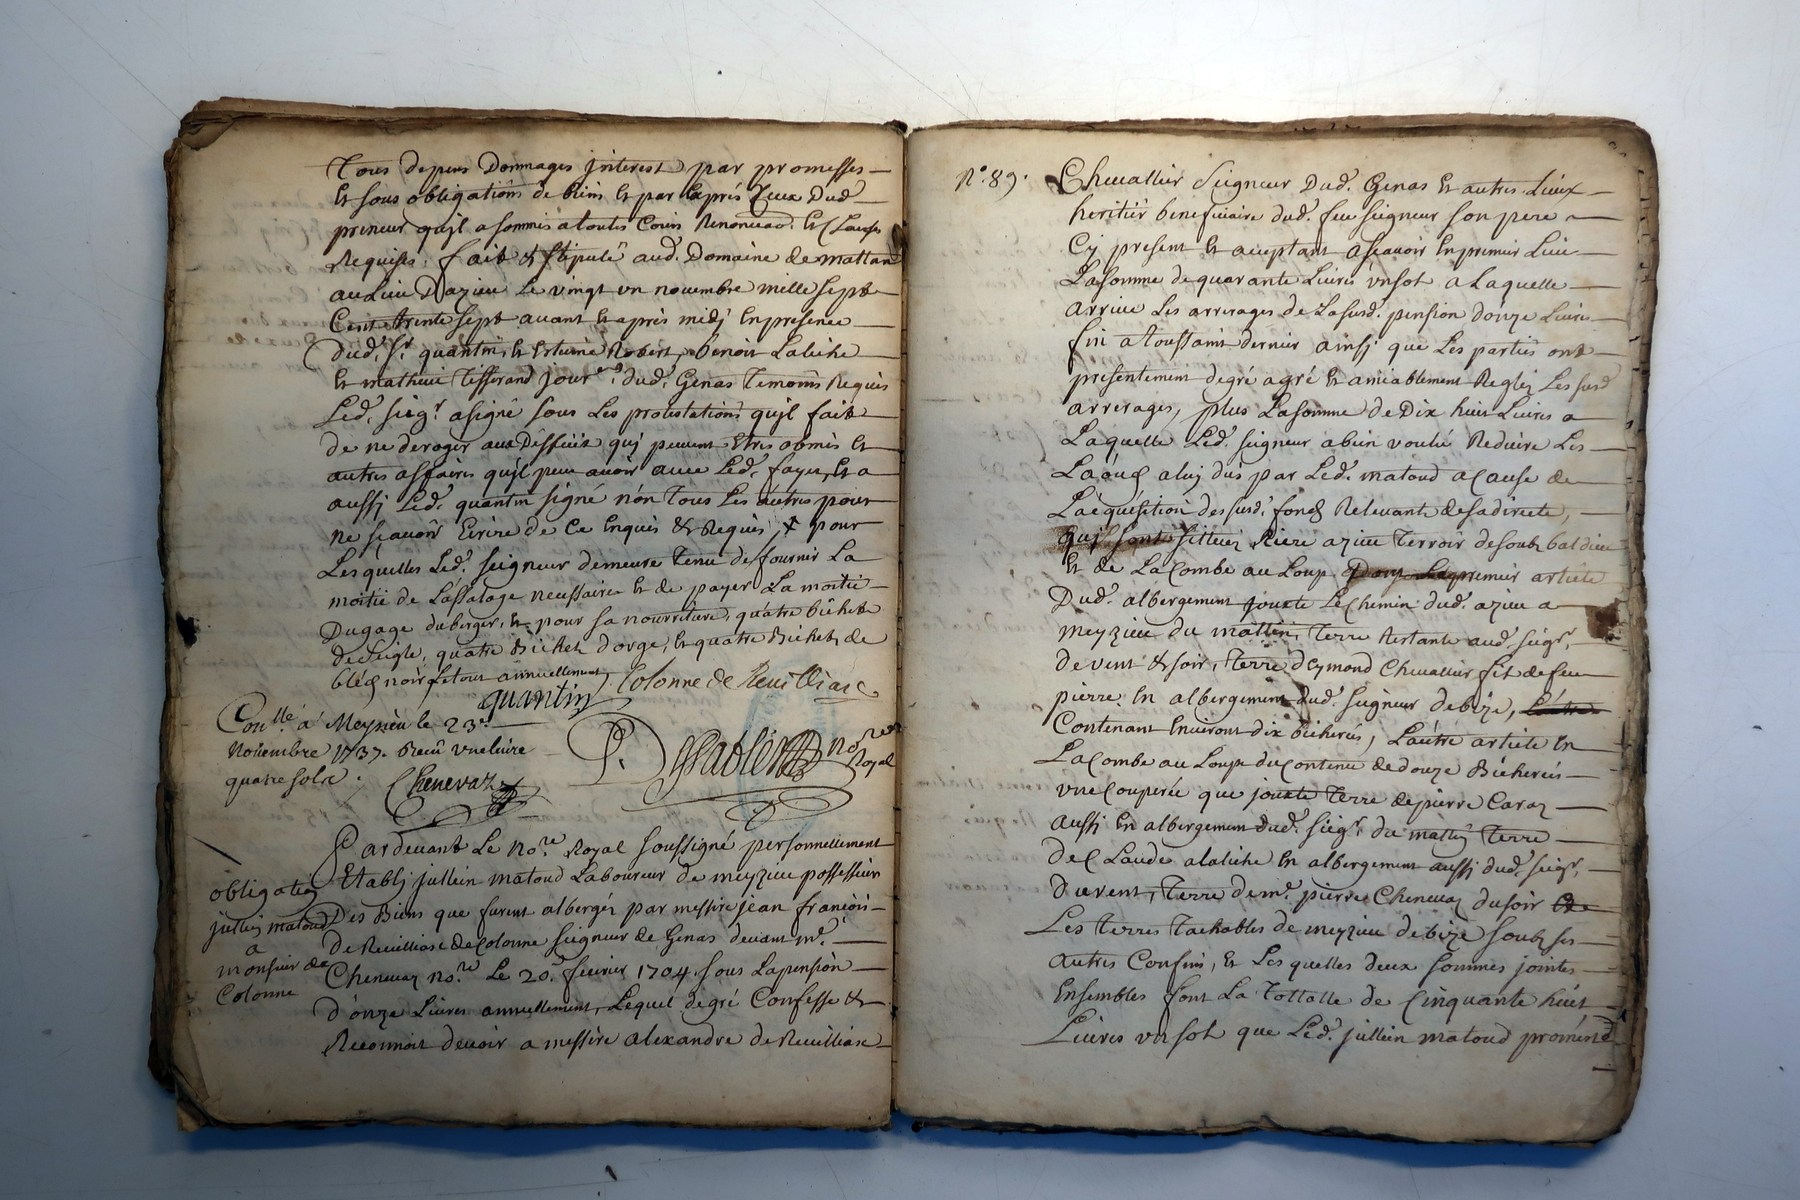 Tous depens Dommages jnterest par promesses
Et sous obligations de biens Et par Exprés Ceux Dud.
preneur qujl a sommis a toutes Cours Renonciao. Et Clauses
Requises, fait & stipulé aud. Domaine de mattan
au Lieu D'azieu Le vingt un novembre mille sept
Cent trente sept avant Et aprés midj En presence
dud. Sr. quantin, Et Estienne Robert, benoit Laliche
Et mathieu Tisserand jour.ers dud. Genas Temoins Requis
Led. seigr. a signé sous Les protestations qujl fait
de ne deroger aux Deffuits quj peuvent Etres obmis Et
autres affaires qujl peut avoir avec Led. fayer, Et a
aussj Led. quantin signé non Tous Les autres pour
ne sçavoir Ecrire de Ce Enquis & Requis x pour
Lesquelles Led. seigneur demeure tenu de fournir La
moitié de Lassatage necessaire Et de payer La moitié
Du gage du berger, Et pour sa nourriture, quatre bichets
de seigle, quatre Bichets d'orge, Et quatre Bichets de
bled noir Le tout annuellement
quantin Colonne de Reuilliasc
P. Dessablien nore. Royal
Con.lle à Meyzieu le 23e.
Novembre 1737. Receu vne livre
quatre sols.
Chenevaz
Pardevant Le nore. Royal soussigné personnellement
Etablj jullien matoud Laboureur de meyzieu possesseur
Des Biens que furent albergés par messire jean françois
de Reuilliasc de Colonne seigneur de Genas devant me.
Chenevaz nore. Le 20. fevrier 1704. sous La pension
d'onze Livres annuellement, Lequel de gré Confesse &
Reconnoit devoir a messire alexandre de Reuilliasc
obligaton
jullien matoud
a
monsieur de
Colonne
N°. 89.
Chevallier Seigneur Dud. Genas Et autres Lieux
heritier beneficiaire dud. feu seigneur son pere
Cy present Et aceptant asçavoir En premier Lieu
La somme de quarante Livres vn sol a Laquelle
arrive Les arrerages de La susd. pension d'onze Livres
fin a toussaint dernier ainsj que Les parties ont
presentement de gré agré Et amiablement Reglés Les susd.
arrerages, plus La somme de Dix huit Livres a
Laquelle Led. seigneur a bien voulu Reduire Les
Laods a luj dus par Led. matoud a Cause de
L'aéquisition des susd. fonds Relevante de sa directe,
quj sont sittuez Riere azieu Terroir de soubz bal dieu
Et de La Combe au Loup Dont Le premier article
Dud. albergement jouxte Le Chemin dud. azieu a
meyzieu du mattin, Terre Restante aud. seigr.
de vent & soir, Terre deymond Chevallier fils de feu
pierre En albergement dud. seigneur de bize,
Contenant Environt dix bicherées, L'autre article En
La Combe au Loup du Contenu de douze Bicherées
vne Couperée que jouxte Terre de pierre Caraz
aussj En albergement dud. seigr. du mattin Terre
de Claude a laliche En albergement aussj dud. seigr.
du vent, Terre de me. pierre Chenevaz du soir
Les Terres Taehables de meyzieu de bize soubz ses
autres Confins, Et Lesquelles deux sommes jointes
Ensembles font La Tottalle de Cinquante huit
Livres vn sol que Led. jullien matoud promet